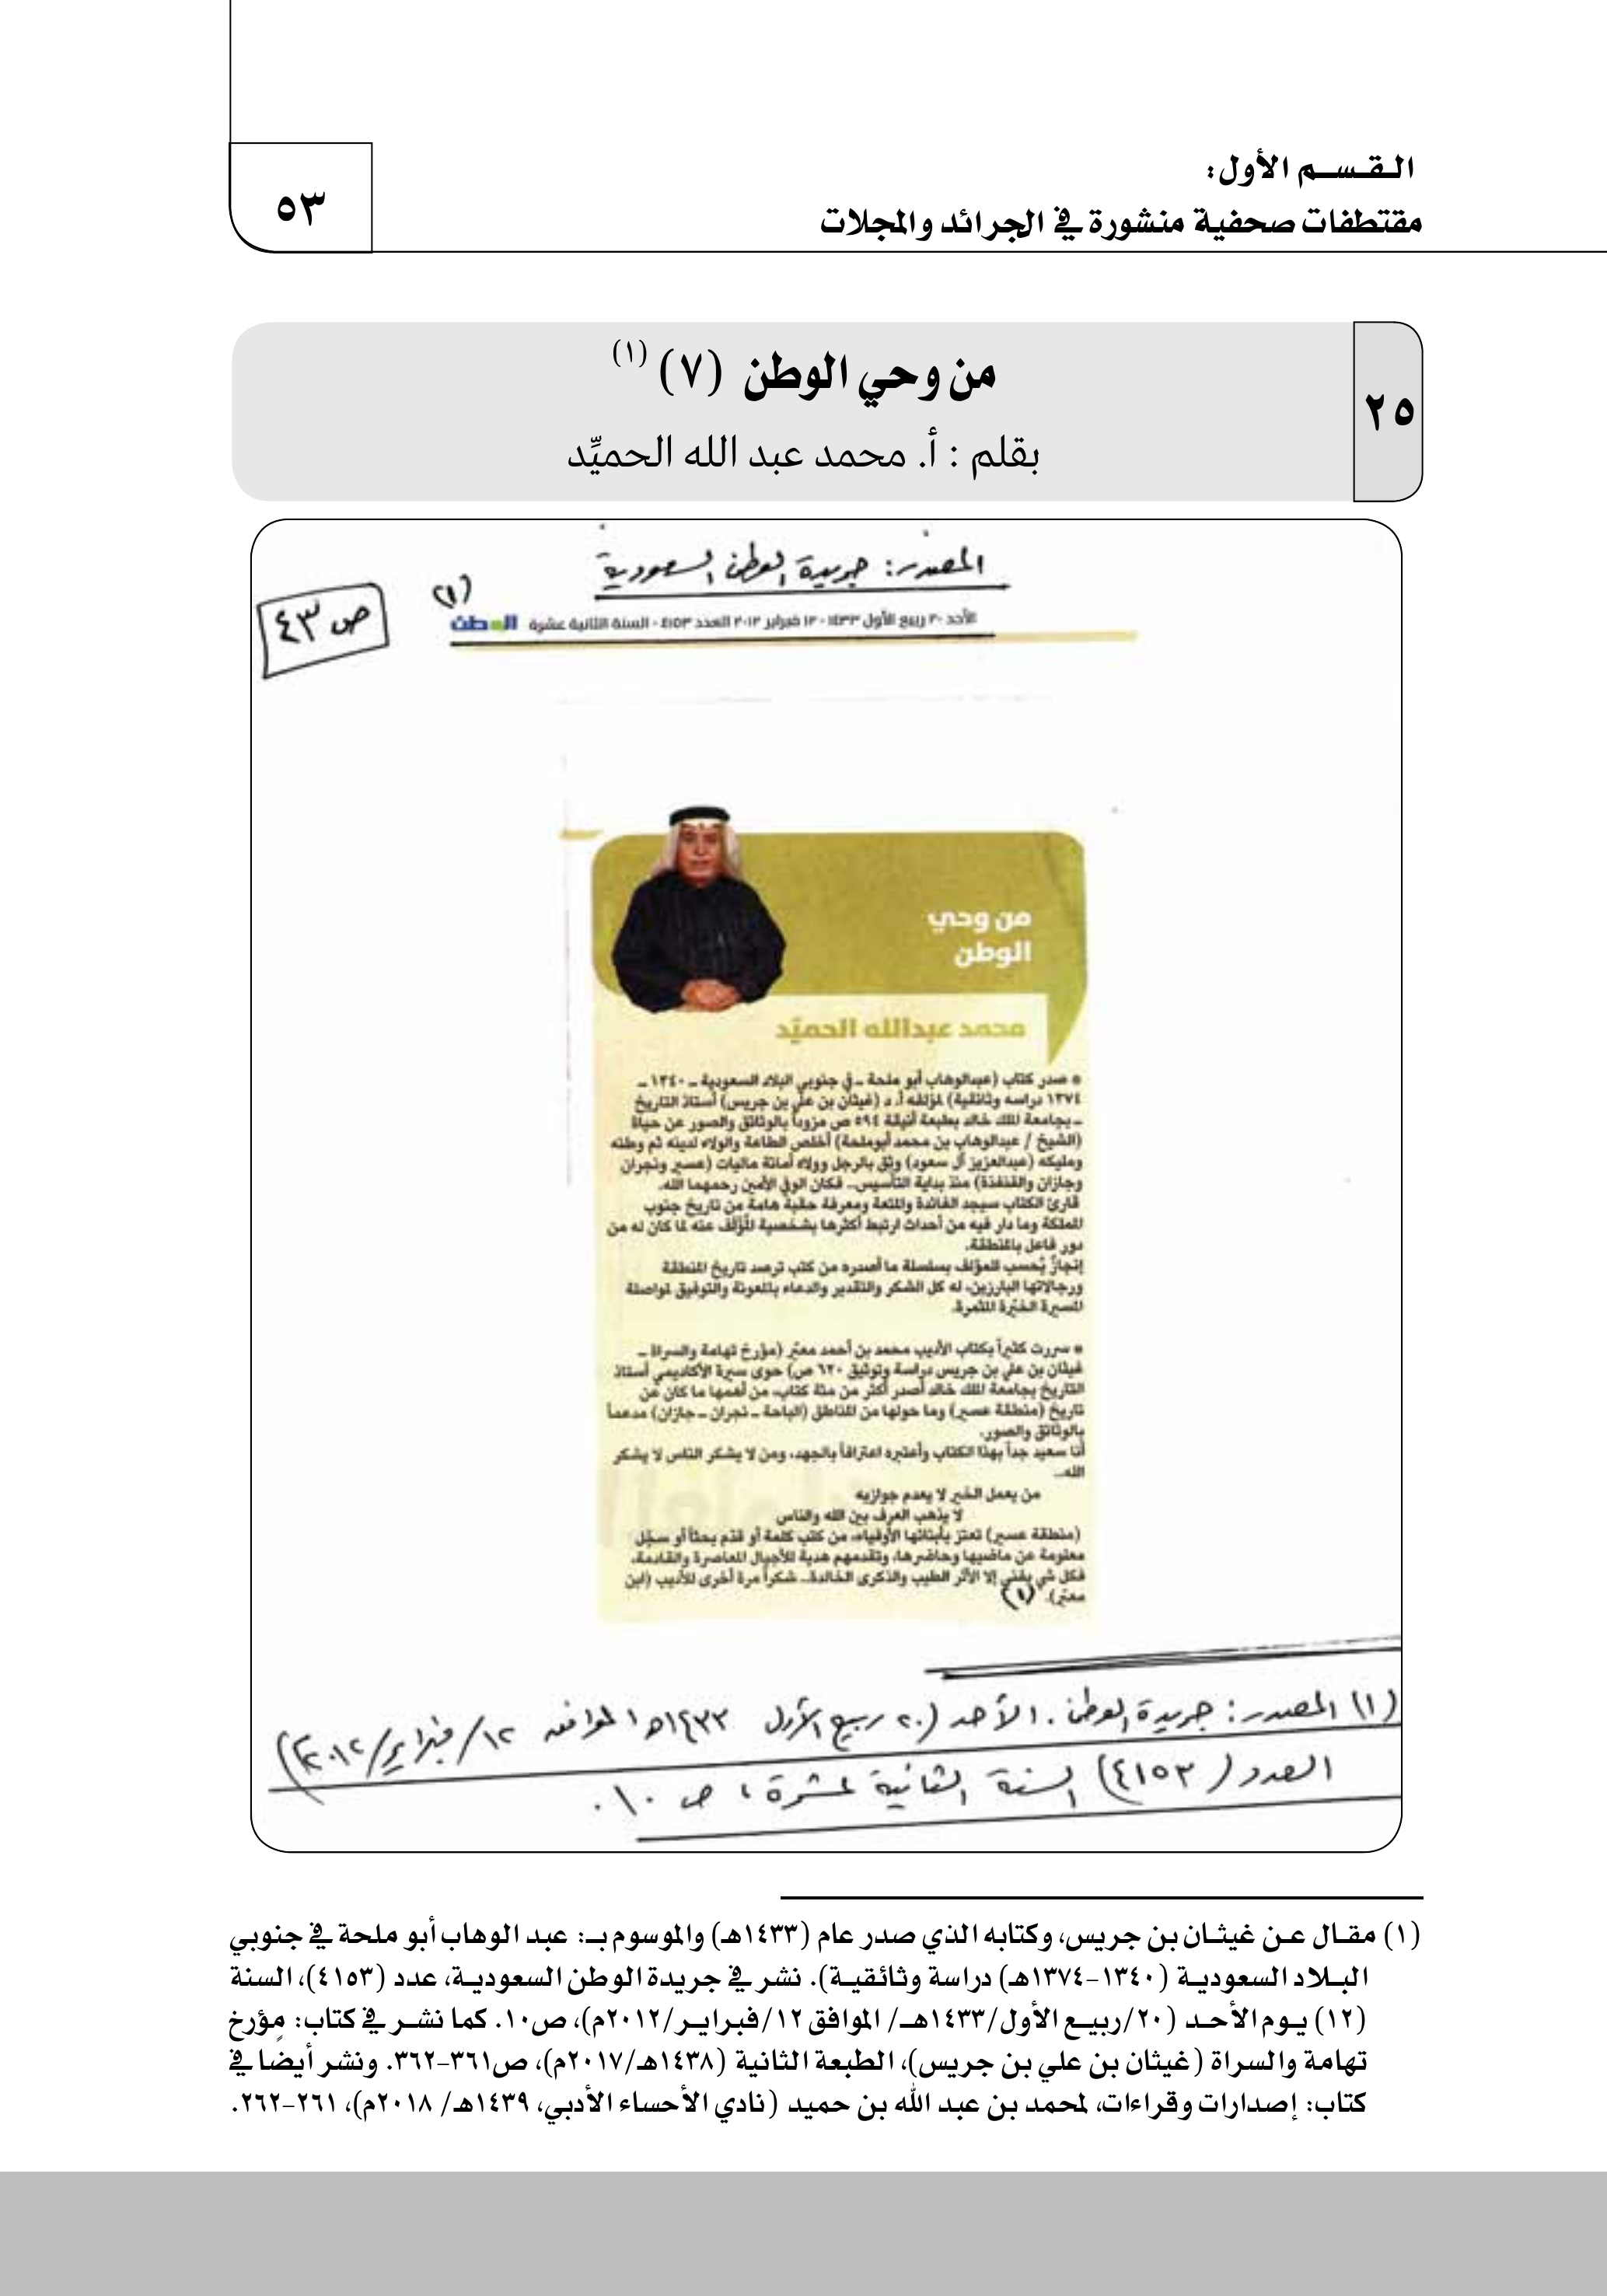 القسم الأول:
مقتطفات صحفية منشورة في الجرائد والمجلات
٥٣
٢٥
من وحي الوطن (٧) (١)
بقلم : أ. محمد عبد الله الحميِّد
المصدر: جريدة الوطن السعودية
(١)
ص ٤٣
الأحد ٢٠ ربيع الأول ١٤٣٣ - ١٢ فبراير ٢٠١٢ العدد ٤١٥٣ - السنة الثانية عشرة الوطن
من وحي
الوطن
محمد عبدالله الحميّد
* صدر كتاب (عبدالوهاب أبو ملحة ـ في جنوبي البلاد السعودية ـ ١٣٤٠ ـ
١٣٧٤ دراسه وثائقية) لمؤلفه أ. د (غيثان بن علي بن جريس) أستاذ التاريخ
ـ بجامعة الملك خالد بطبعة أنيقة ٥٩٤ ص مزوداً بالوثائق والصور عن حياة
(الشيخ / عبدالوهاب بن محمد أبوملحة) أخلص الطاعة والولاء لدينه ثم وطنه
ومليكه (عبدالعزيز آل سعود) وثق بالرجل وولاه أمانة ماليات (عسير ونجران
وجازان والقنفذة) منذ بداية التأسيس.. فكان الوفي الأمين رحمهما الله.
قارئ الكتاب سيجد الفائدة والمتعة ومعرفة حقبة هامة من تاريخ جنوب
المملكة وما دار فيه من أحداث ارتبط أكثرها بشخصية المؤلَّف عنه لما كان له من
دور فاعل بالمنطقة.
إنجازٌ يُحسب للمؤلف بسلسلة ما أصدره من كتب ترصد تاريخ المنطقة
ورجالاتها البارزين، له كل الشكر والتقدير والدعاء بالمعونة والتوفيق لمواصلة
المسيرة الخيّرة المثمرة.
* سررت كثيراً بكتاب الأديب محمد بن أحمد معبّر (مؤرخ تهامة والسراة ـ
غيثان بن علي بن جريس دراسة وتوثيق ٦٢٠ ص) حوى سيرة الأكاديمي أستاذ
التاريخ بجامعة الملك خالد أصدر أكثر من مئة كتاب، من أهمها ما كان عن
تاريخ (منطقة عسير) وما حولها من المناطق (الباحة ـ نجران ـ جازان) مدعماً
بالوثائق والصور.
أنا سعيد جداً بهذا الكتاب وأعتبره اعترافاً بالجهد، ومن لا يشكر الناس لا يشكر
الله..
من يعمل الخير لا يعدم جوازيه
لا يذهب العرف بين الله والناس
(منطقة عسير) تعتز بأبنائها الأوفياء، من كتب كلمة أو قدّم بحثاً أو سجّل
معلومة عن ماضيها وحاضرها، وتقدمهم هدية للأجيال المعاصرة والقادمة،
فكل شي يفنى إلا الأثر الطيب والذكرى الخالدة.. شكراً مرة أخرى للأديب (ابن
معبّر). (١)
(١) المصدر: جريدة الوطن. الأحد (٢٠ ربيع الأول ١٤٣٣هـ الموافق ١٢/فبراير/٢٠١٢م)
العدد (٤١٥٣) السنة الثانية عشرة، ص ١٠.
(١) مقال عن غيثان بن جريس، وكتابه الذي صدر عام (١٤٣٣هـ) والموسوم بـ: عبد الوهاب أبو ملحة في جنوبي
البلاد السعودية (١٣٤٠-١٣٧٤هـ) دراسة وثائقية). نشر في جريدة الوطن السعودية، عدد (٤١٥٣)، السنة
(١٢) يوم الأحد (٢٠/ربيع الأول/١٤٣٣هـ/ الموافق ١٢/فبراير/٢٠١٢م)، ص١٠. كما نشر في كتاب: مؤرخ
تهامة والسراة (غيثان بن علي بن جريس)، الطبعة الثانية (١٤٣٨هـ/٢٠١٧م)، ص٣٦١-٣٦٢. ونشر أيضا في
كتاب: إصدارات وقراءات، لمحمد بن عبد الله بن حميد (نادي الأحساء الأدبي، ١٤٣٩هـ/ ٢٠١٨م)، ٢٦١-٢٦٢.